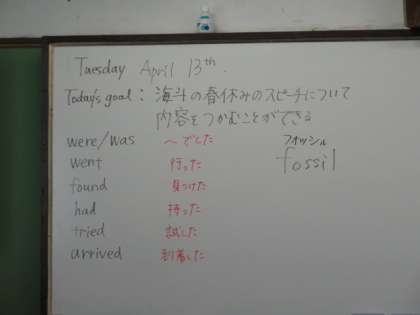 Tuesday April 13th.
Today's goal: 海斗の春休みのスピーチについて
内容をつかむことができる
were/was ～でした
フォッシル
went 行った
fossil
found 見つけた
had 持った
tried 試した
arrived 到着した